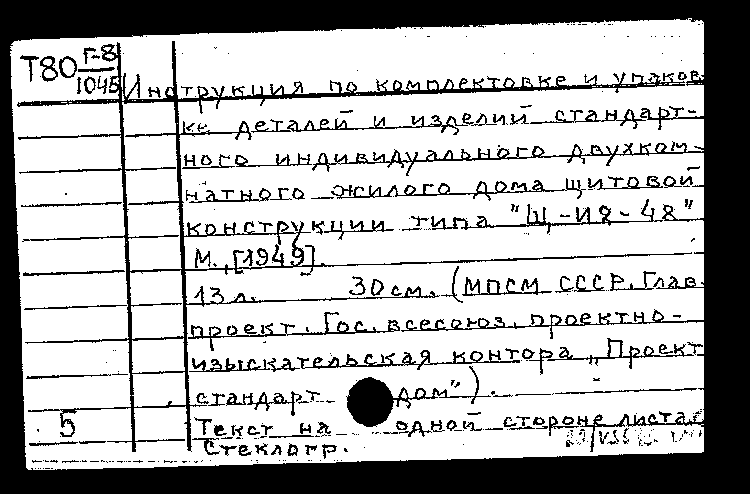 Т80 Г-8
1045
Инструкция по комплектовке и упаков-
ке деталей и изделий стандарт-
ного индивидуального двухком-
натного жилого дома щитовой
конструкции типа "Щ-И2-48"
М., [1949].
13 л. 30 см. (МПСМ СССР. Глав.
проект. Гос. всесоюз. проектно-
изыскательская контора „Проект
стандарт дом").
5 Текст на одной стороне листа.
Стеклогр.